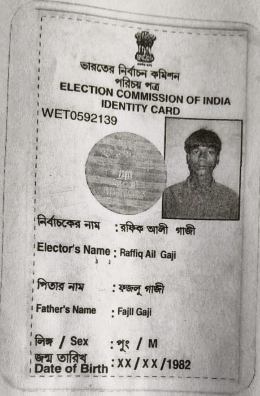 ভারতের নির্বাচন কমিশন
পরিচয় পত্র
ELECTION COMMISSION OF INDIA
IDENTITY CARD
WET0592139
নির্বাচকের নাম : রফিক আলী গাজী
Elector's Name : Raffiq Ail Gaji
পিতার নাম : ফজলু গাজী
Father's Name : Fajll Gaji
লিঙ্গ / Sex : পুং / M
জন্ম তারিখ
Date of Birth : XX / XX / 1982